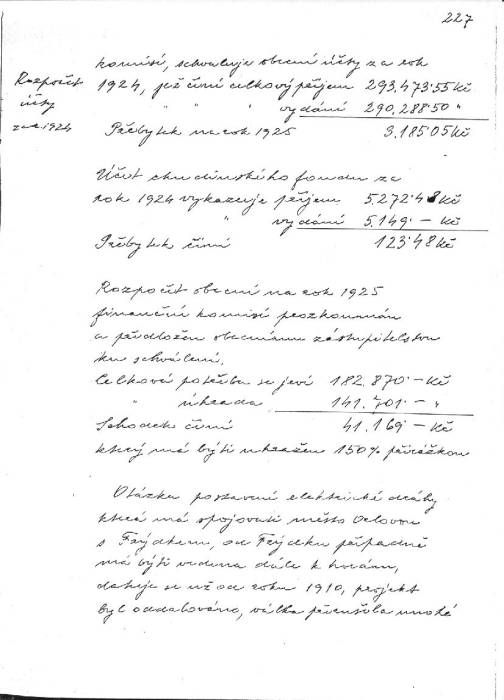 227
komisí, schvaluje obecní účty za rok
Rozpočet
účty
za r. 1924
1924, jež činí celkový příjem 293.473·55 Kč
" " " vydání 290.288·50 "
Přebytek na rok 1925 3.185 05 Kč
Účet chudinského fondu za
rok 1924 vykazuje příjem 5.272·48 Kč
" vydání 5.149·— Kč
Přebytek činí 123·48 Kč
Rozpočet obecní na rok 1925
finanční komisí přezkoumán
a předložen obecnímu zastupitelstvu
ku schválení.
Celková potřeba se jeví 182.870·— Kč
" úhrada 141.701·— "
Schodek činí 41.169·— Kč
který má býti uhražen 150% přirážkou
Otázka postavení elektrické dráhy
která má spojovati město Orlovou
s Frýdkem, od Frýdku případně
má býti vedena dále k horám,
datuje se už od roku 1910, projekt
byl oddalováno, válka přerušila mnohé